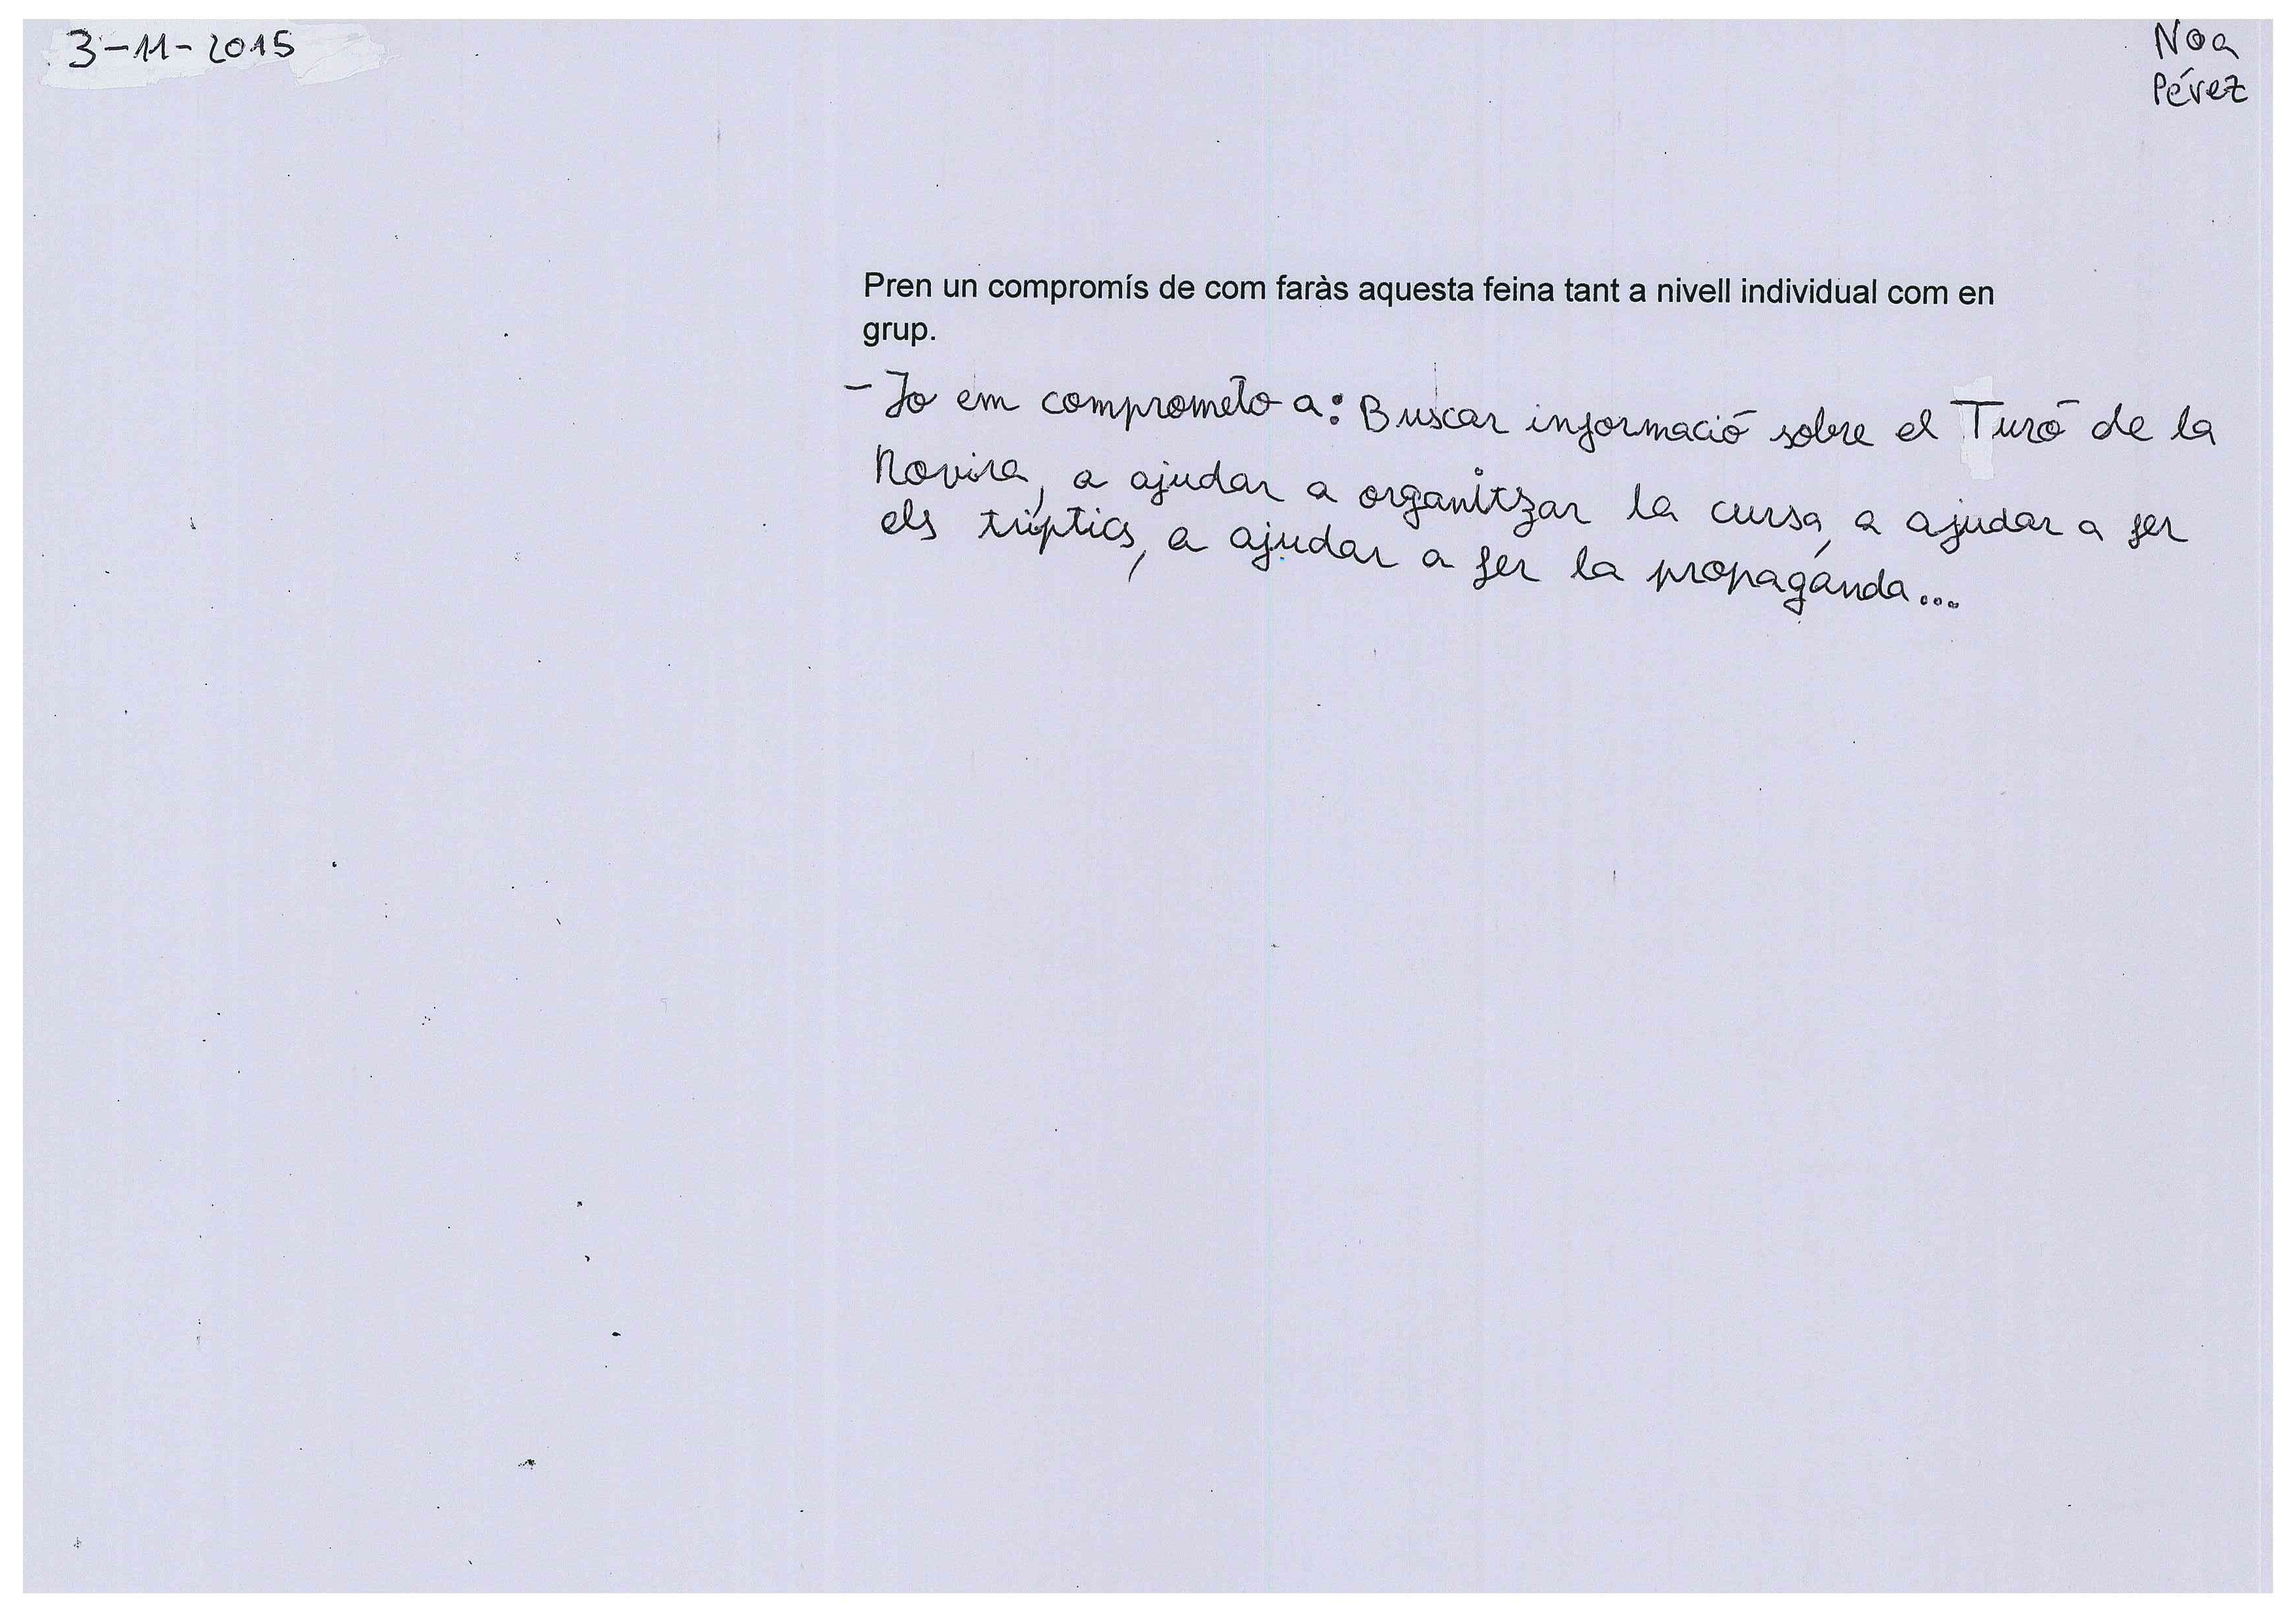 3-11-2015
Noa
Pérez
Pren un compromís de com faràs aquesta feina tant a nivell individual com en
grup.
- Jo em comprometo a: Buscar informació sobre el Turó de la
Rovira, a ajudar a organitzar la cursa, a ajudar a fer
els tríptics, a ajudar a fer la propaganda...